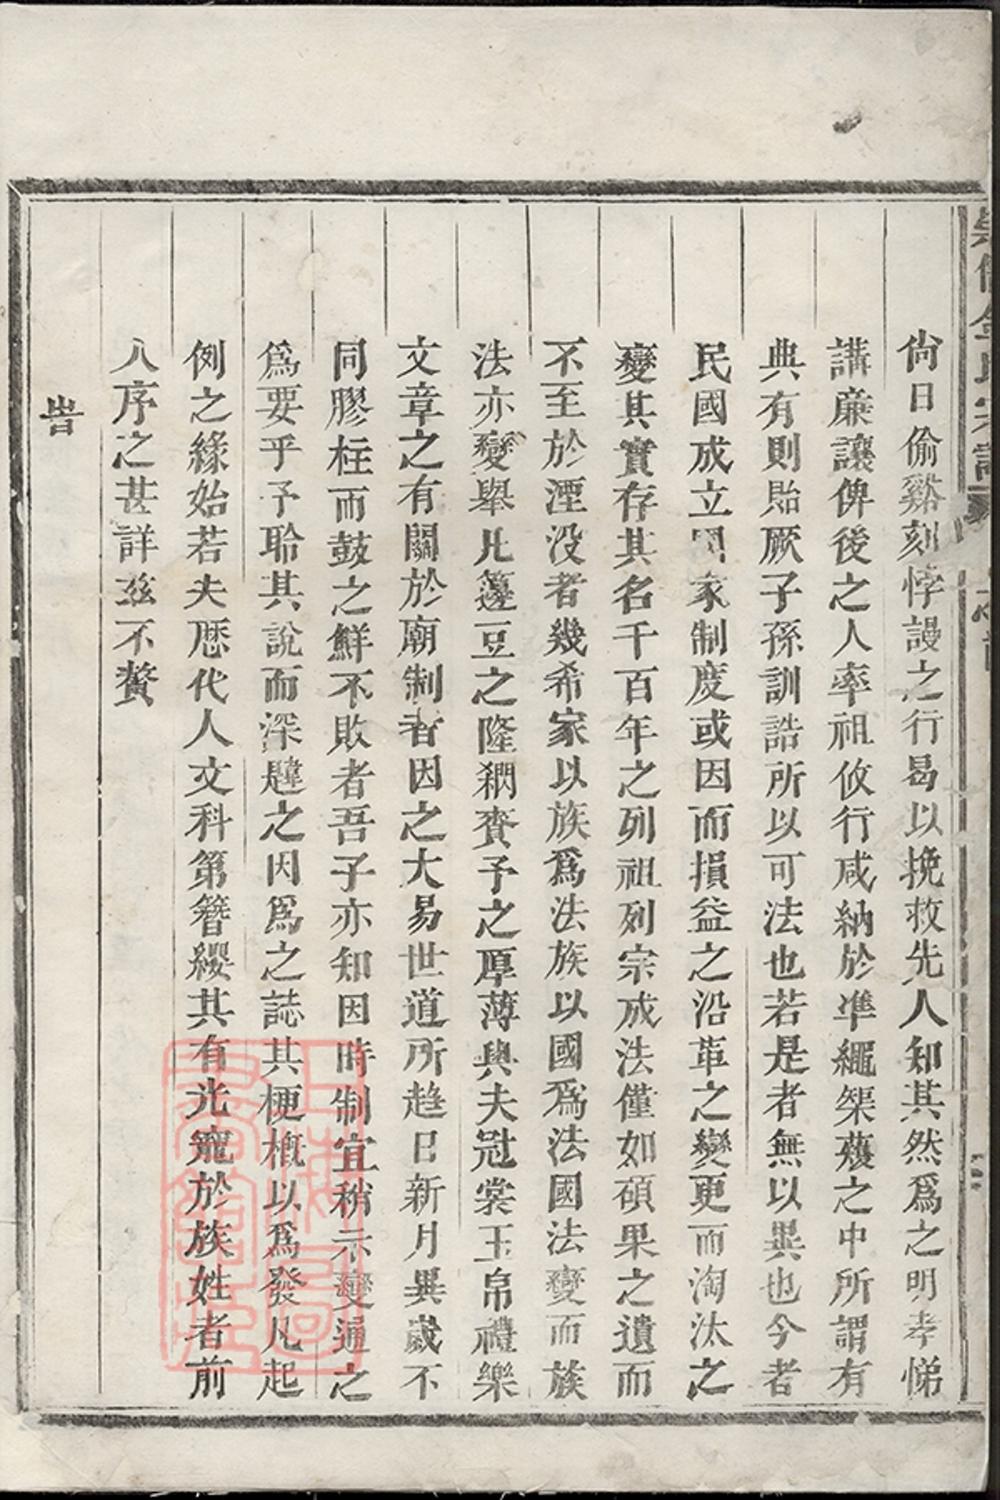 尙日偷谿刻悖謾之行曷以挽救先人知其然爲之明孝悌
講廉讓俾後之人率祖攸行咸納於準繩榘蒦之中所謂有
典有則貽厥子孫訓誥所以可法也若是者無以異也今者
民國成立国家制度或因而損益之沿革之變更而淘汰之
變其實存其名千百年之列祖列宗成法僅如碩果之遺而
不至於湮没者幾希家以族爲法族以國爲法國法變而族
法亦變舉凡籩豆之隆稠賚予之厚薄與夫冠裳玉帛禮樂
文章之有關於廟制者因之大易世道所趋日新月異歲不
同膠柱而鼓之鮮不敗者吾子亦知因時制宜稍示變通之
爲要乎予聆其說而深韙之因爲之誌其梗概以爲發凡起
例之緣始若夫歷代人文科第簪纓其有光寵於族姓者前
人序之甚詳兹不贅
旹